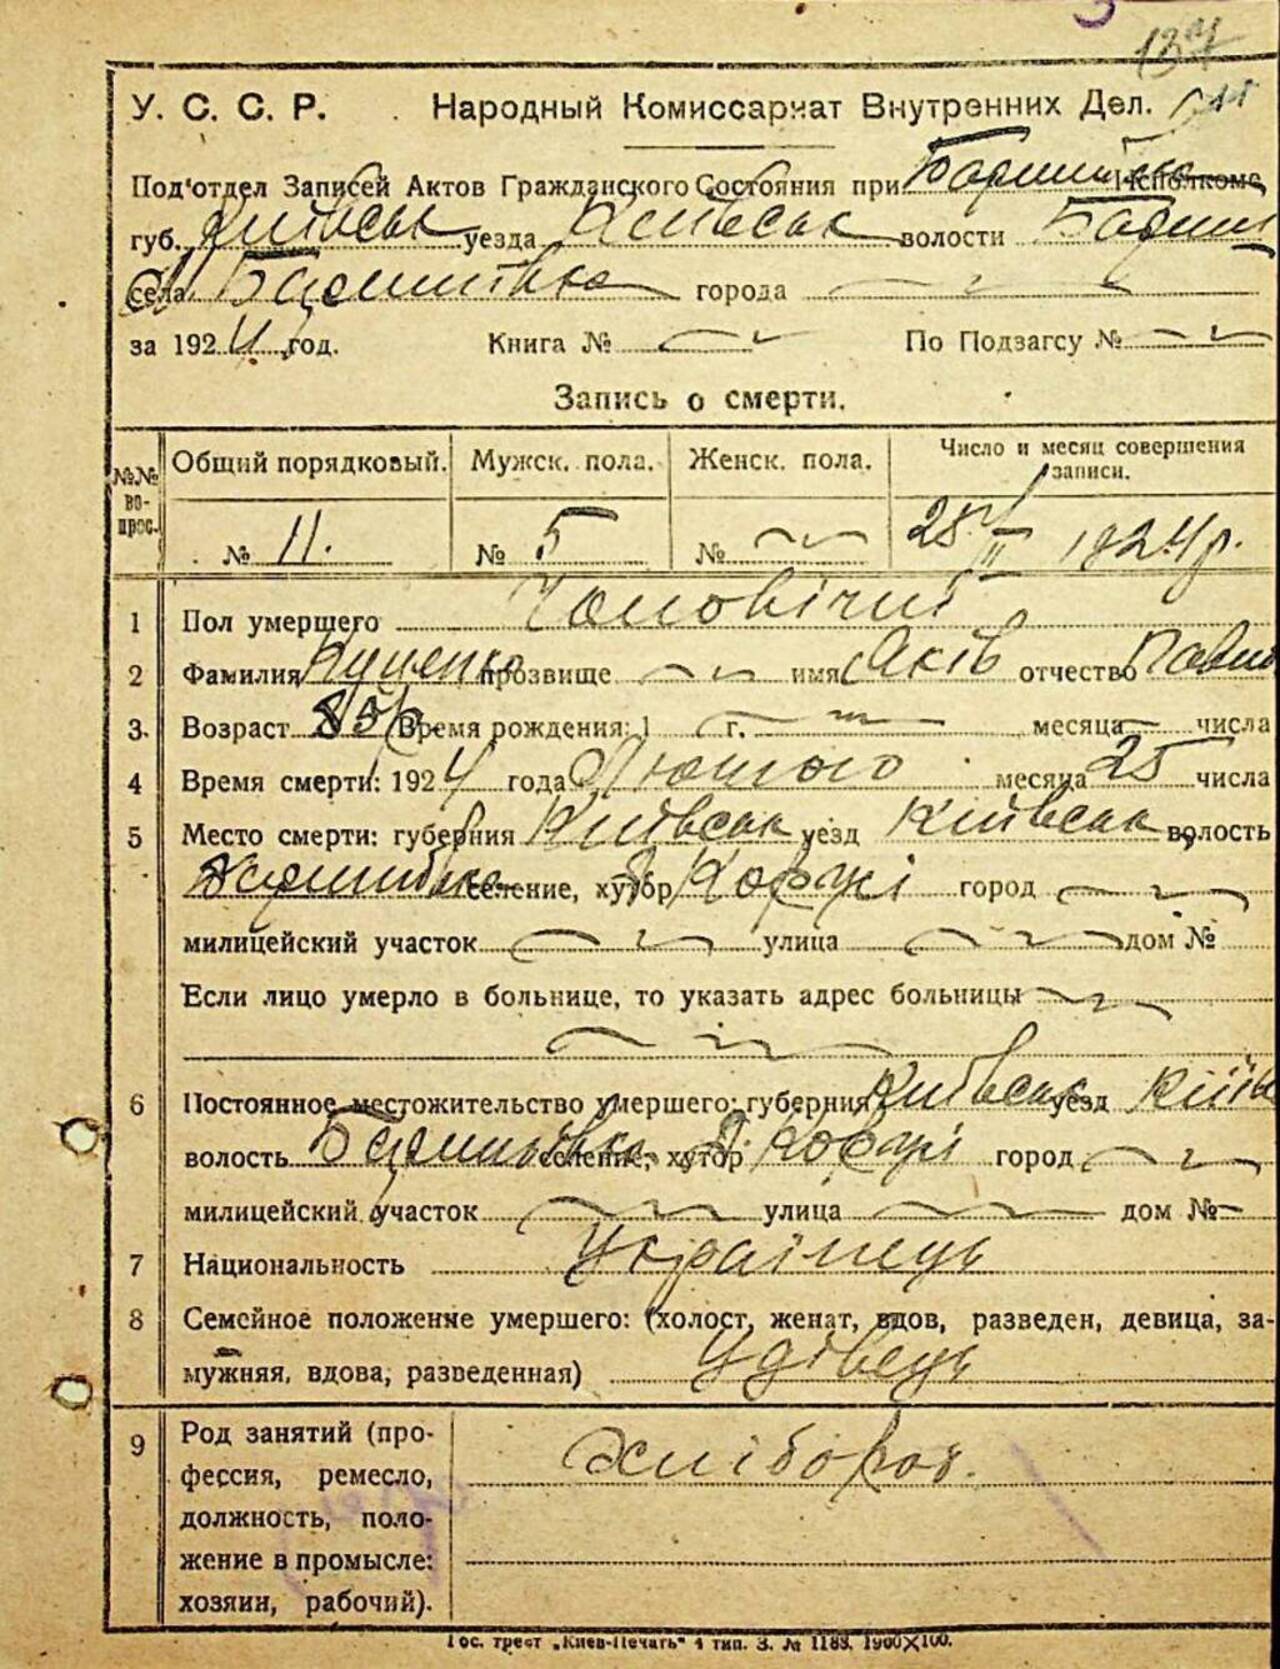 137
У. С. С. Р. Народный Комиссариат Внутренних Дел.
Под'отдел Записей Актов Гражданского Состояния при Исполкоме
губ. Київськ уезда Київськ волости Бариш
села Баришівка города
за 1924 год. Книга № По Подзагсу №
Запись о смерти.
№№ вопрос. Общий порядковый. Мужск. пола. Женск. пола. Число и месяц совершения записи.
№ 11. № 5 № 28 1924 р.
1 Пол умершего Чоловічий
2 Фамилия Куценко прозвище имя Яків отчество Павл
3. Возраст 85 Время рождения: 1 г. месяца числа
4 Время смерти: 1924 года Лютого месяца 25 числа
5 Место смерти: губерния Київськ уезд Київськ волость
Баришівка селение, хутор Коржі город
милицейский участок улица дом №
Если лицо умерло в больнице, то указать адрес больницы
6 Постоянное местожительство умершего: губерния Київськ уезд Київ
волость Баришівка селение, хутор Коржі город
милицейский участок улица дом №
7 Национальность Українець
8 Семейное положение умершего: (холост, женат, вдов, разведен, девица, за-
мужняя, вдова, разведенная) Удівець
9 Род занятий (про-
фессия, ремесло,
должность, поло-
жение в промысле:
хозяин, рабочий).
Хлібороб.
Гос. трест „Киев-Печать“ 4 тип. З. № 1183. 1900×100.